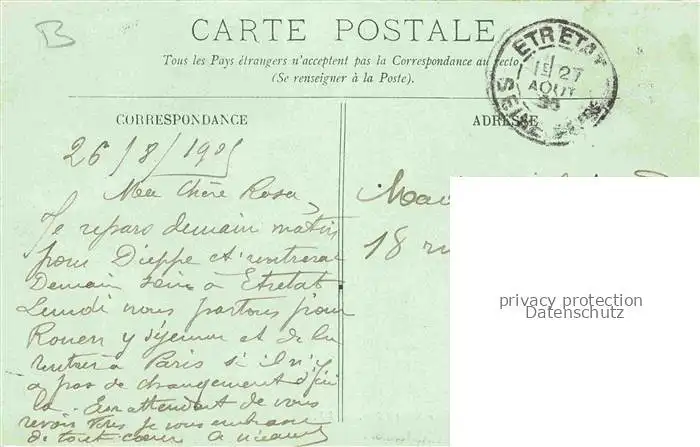 B
CARTE POSTALE
Tous les Pays étrangers n'acceptent pas la Correspondance au recto
(Se renseigner à la Poste).
ETRETAT
1E 27
AOUT
SEINE
CORRESPONDANCE
ADRESSE
26/8/1905
Ma Chère Rosa,
Je repars demain matin
pour Dieppe et rentrerai
Demain soir à Etretat.
Lundi nous partons pour
Rouen y séjourner et de là
rentrer à Paris si il n'y
a pas de changement d'ici
là. En attendant de vous
revoir tous je vous embrasse
de tout cœur
18 ru
privacy protection
Datenschutz